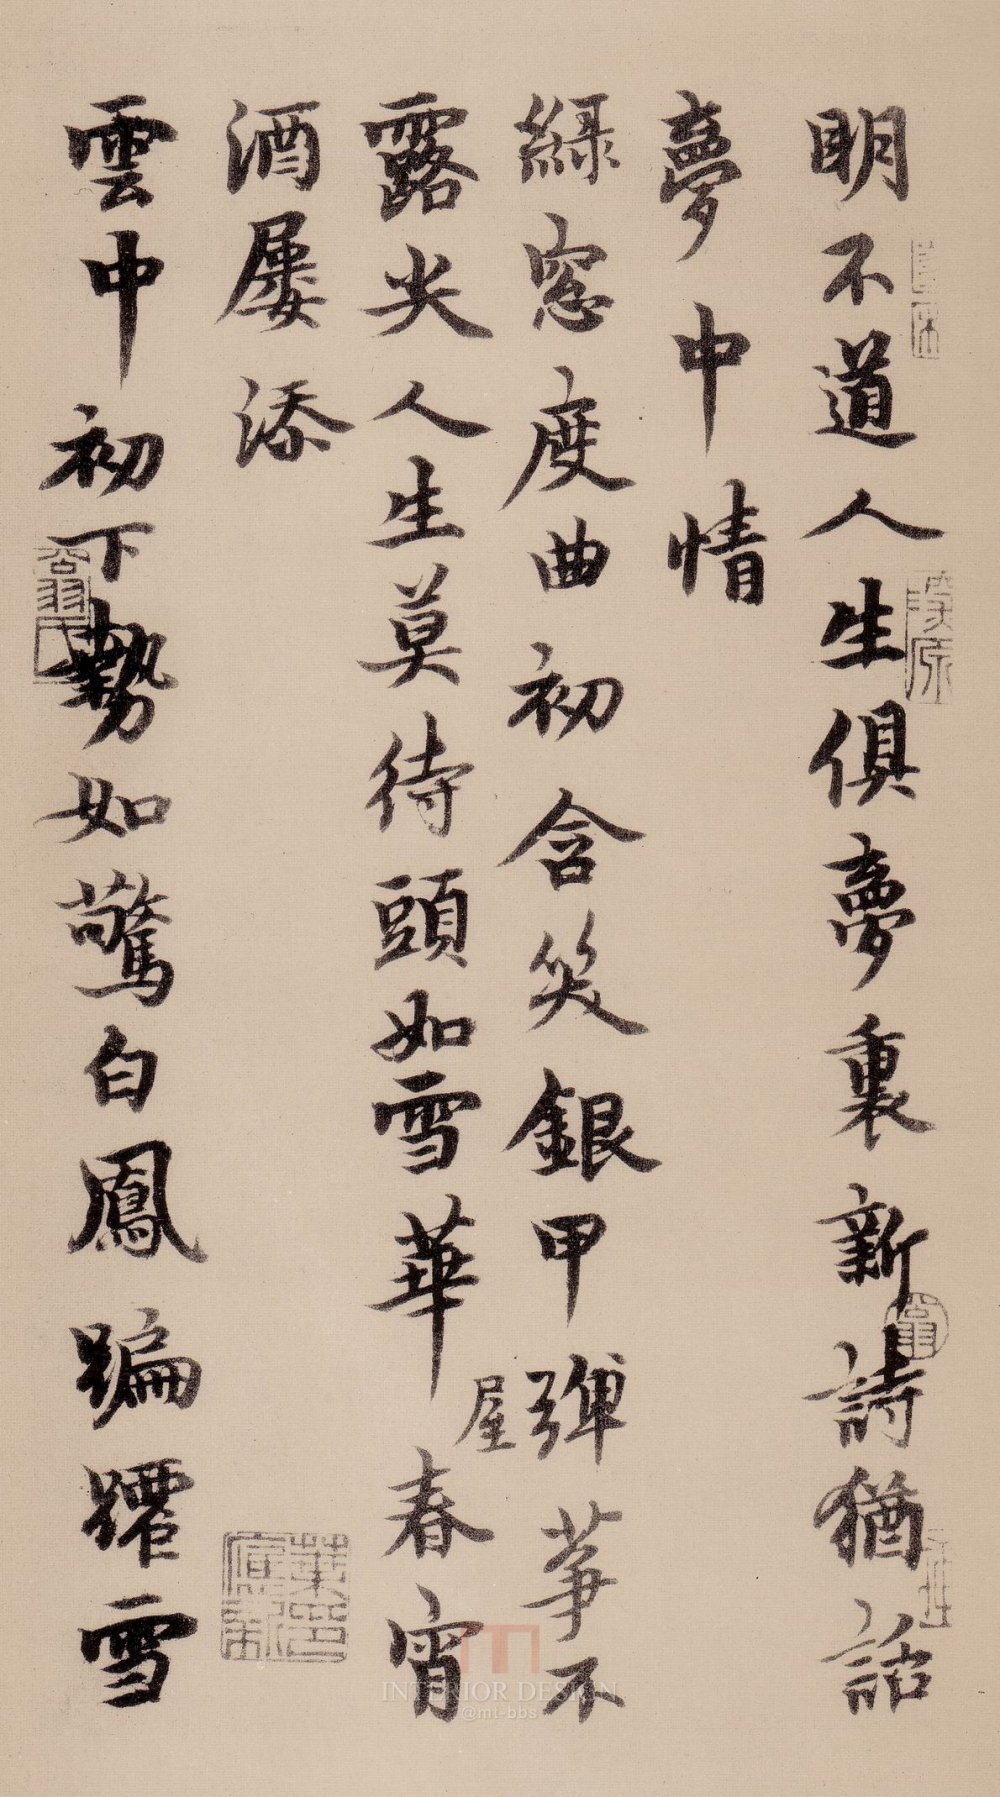 明不道人生俱夢裏新詩猶話
夢中情
綠窓度曲初含笑銀甲弹茟不
露尖人生莫待頭如雪華屋春宵
酒屢添
雲中初下勢如驚白鳳蹁躚雪
INTERIOR DESIGN
@mt-bbs